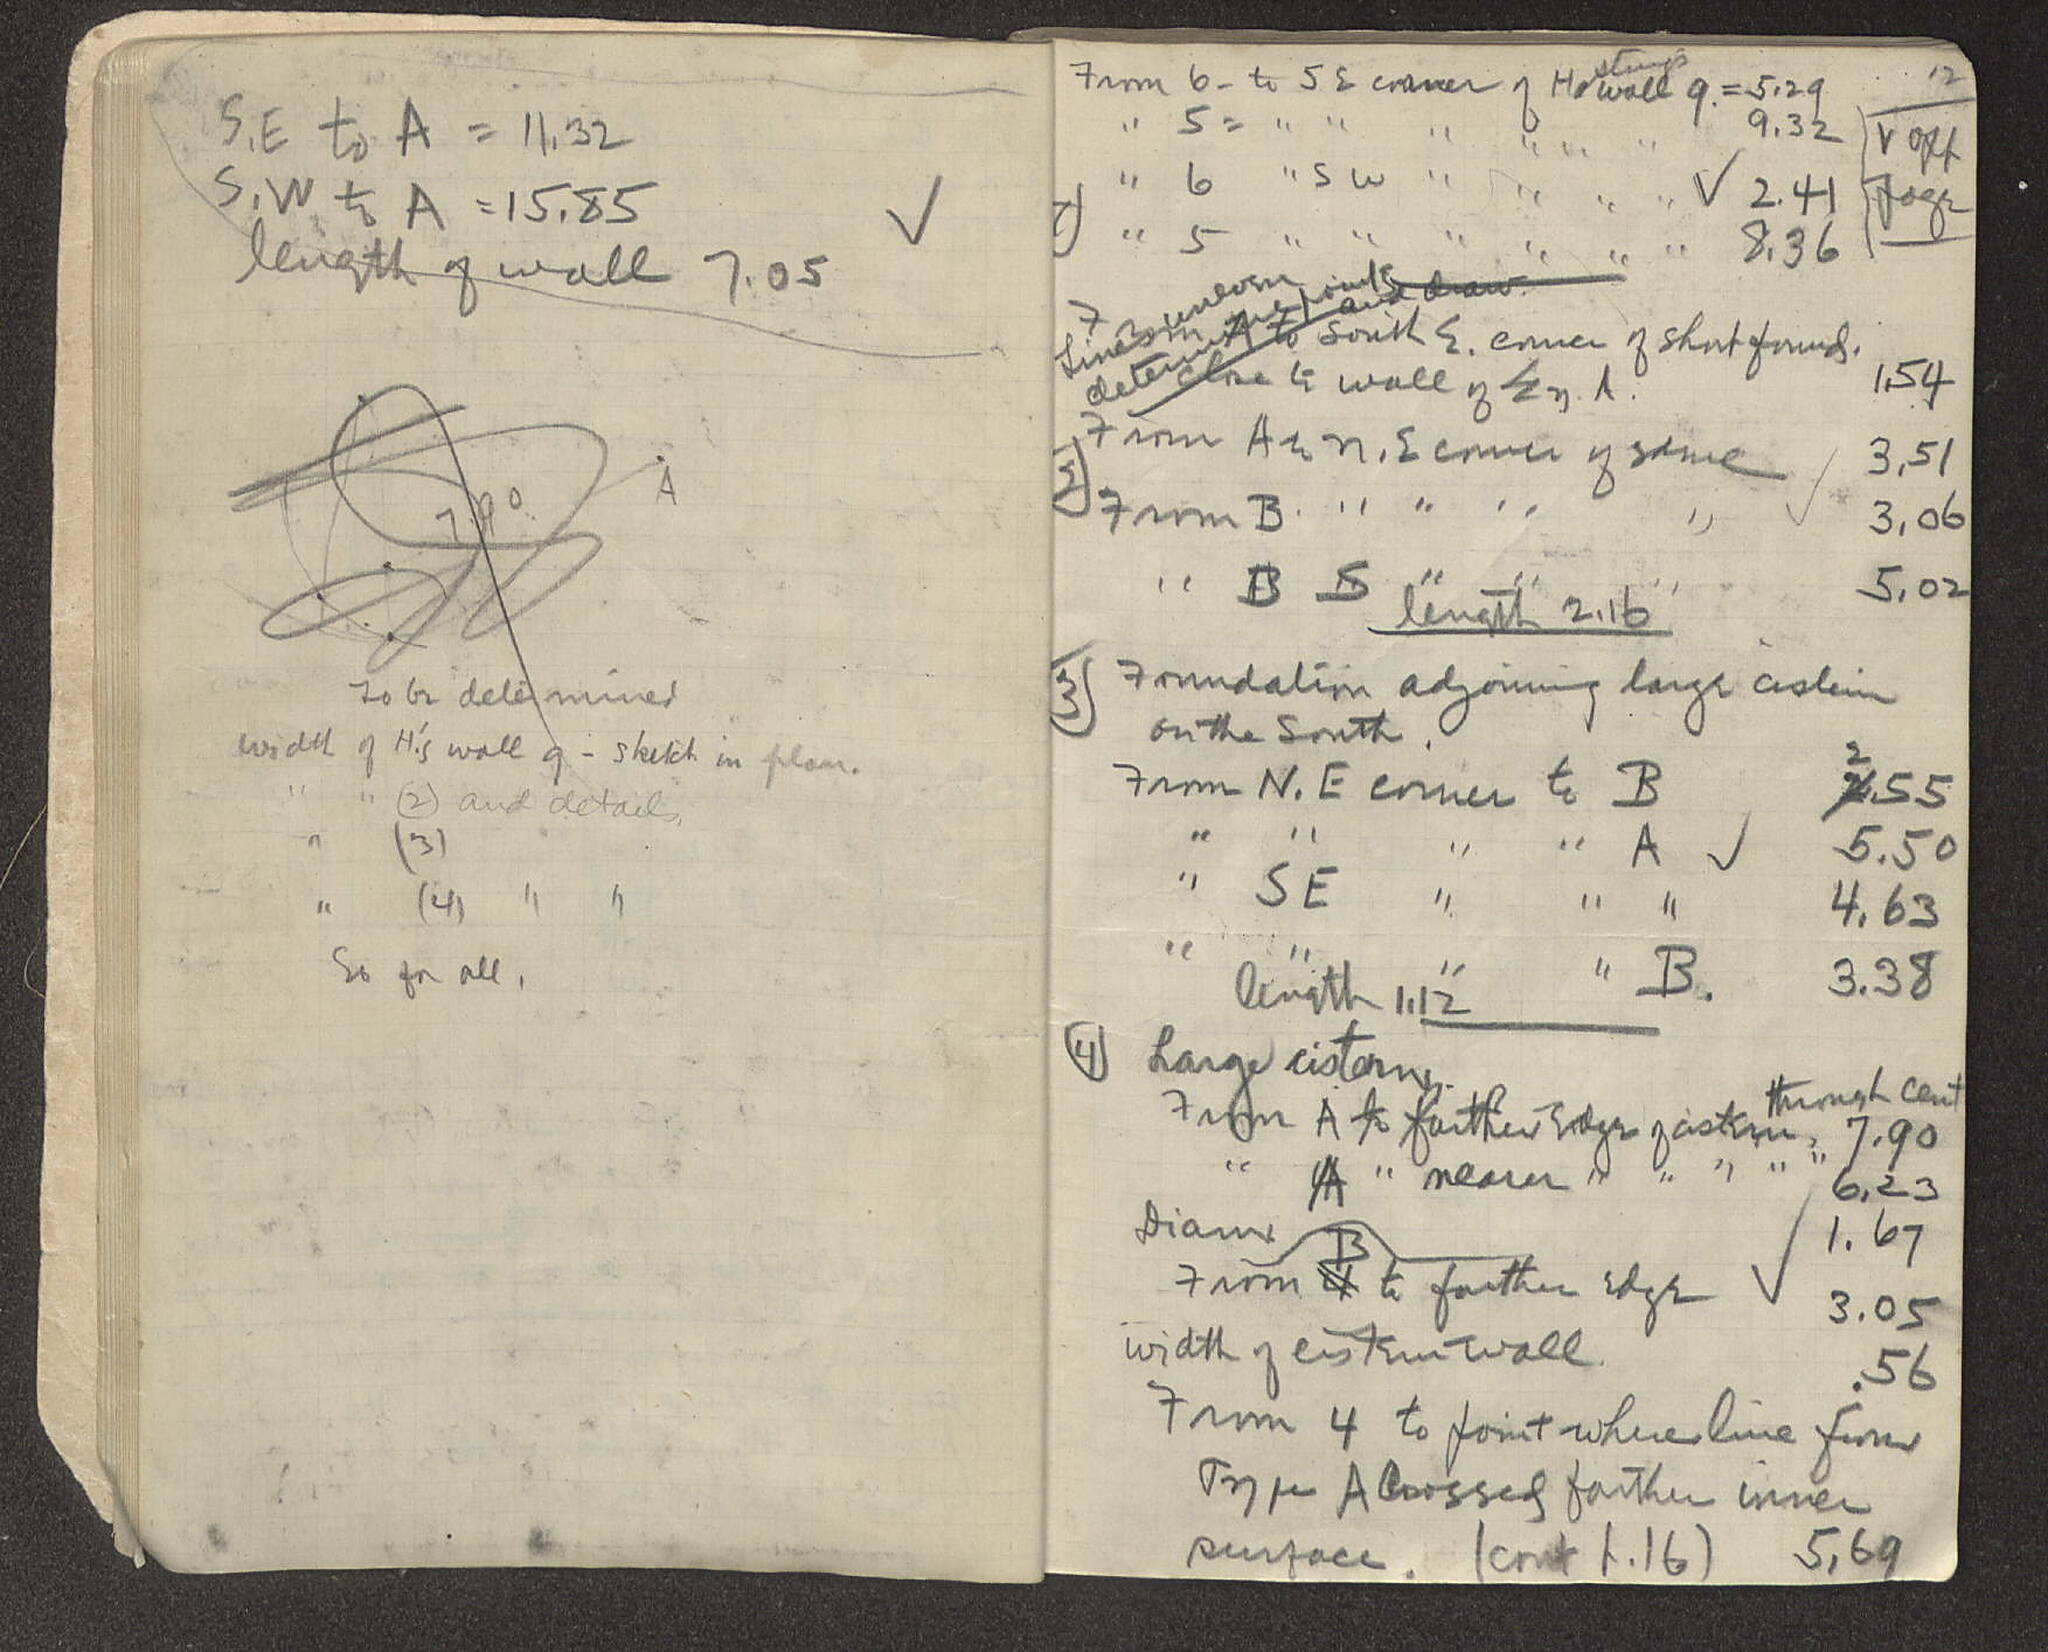 S.E to A = 11.32
S.W to A = 15.85
length of wall 7.05
A
7.90
To be determined
width of H's wall q - sketch in plan.
" " (2) and details.
" (3)
" (4) " "
So for all.
12
From 6 - to SE corner of Hastings wall q. = 5.29
" 5 = " " " " " " 9.32
" 6 " SW " " " " 2.41
" 5 " " " " " " 8.36
v opp page
Lines uneven
determine points and draw.
From A to South E. corner of short found.
close to wall of 1.54
2) From A to N.E corner of same 3.51
From B " " " " 3.06
" B S " " " 5.02
length 2.16
3) Foundation adjoining large cistern
on the South.
From N.E corner to B 2.55
" " " " A 5.50
" SE " " " 4.63
" " " " B. 3.38
length 1.12
4) Large cistern.
through cent
From A to farther Edge of cistern, 7.90
" A " nearer " " " " " 6.23
Diam 1.67
B
From 4 to farther Edge 3.05
width of cistern wall .56
From 4 to point where line from
Type A crossed farther inner
surface. (cont p.16) 5.69